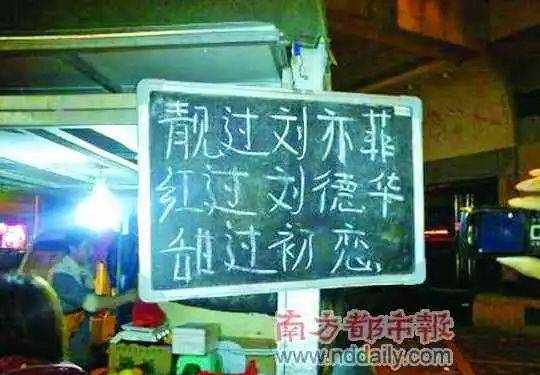 靓过刘亦菲
红过刘德华
甜过初恋,
南方都市報
www.nddaily.com